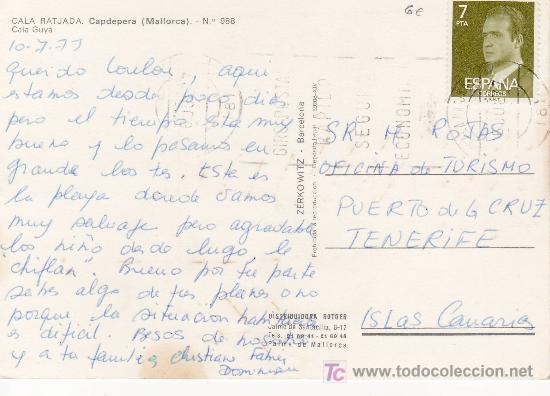 CALA RATJADA. Capdepera (Mallorca). - N.º 988
Cala Guya
6€
10.7.77
Querido Loulou, aqui
estamos desde poco dias
pero el tiempo esta muy
bueno y lo pasamos en
grande los tes. Este es
la playa donde vamos
muy salvaje pero agradable
"los niño dado lugo, le
chiflan". Bueno por tu parte
sabes algo de tus planes o no
porque la situacion
es dificil. Besos de nosotros
y a tu familia Christian
Dominique
ZERKOWITZ - Barcelona
Prohibida la reproducción
Depósito Legal
DISTRIBUIDORA ROTGER
Palma de Mallorca
7
PTA
ESPAÑA
CORREOS
GIRO POSTAL
RAPIDO
SEGURO
ECONOMICO
SR. M. ROJAS
OFICINA de TURISMO
PUERTO de la CRUZ
TENERIFE
ISLAS Canarias
todocoleccion.net